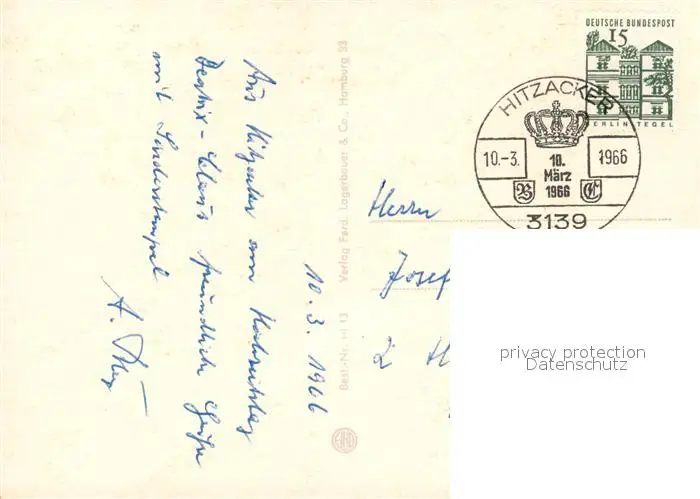 Aus Hitzacker am Hochzeitstag
Beatrix - Claus freundliche Grüße
mit Sonderstempel
10. 3. 1966
Best.-Nr. HI 13 Verlag Ferd. Lagerbauer & Co., Hamburg 33
DEUTSCHE BUNDESPOST
15
BERLIN TEGEL
HITZACKER
10.-3. 1966
10.
März
1966
B C
3139
Herrn
Josef
2 H
privacy protection
Datenschutz